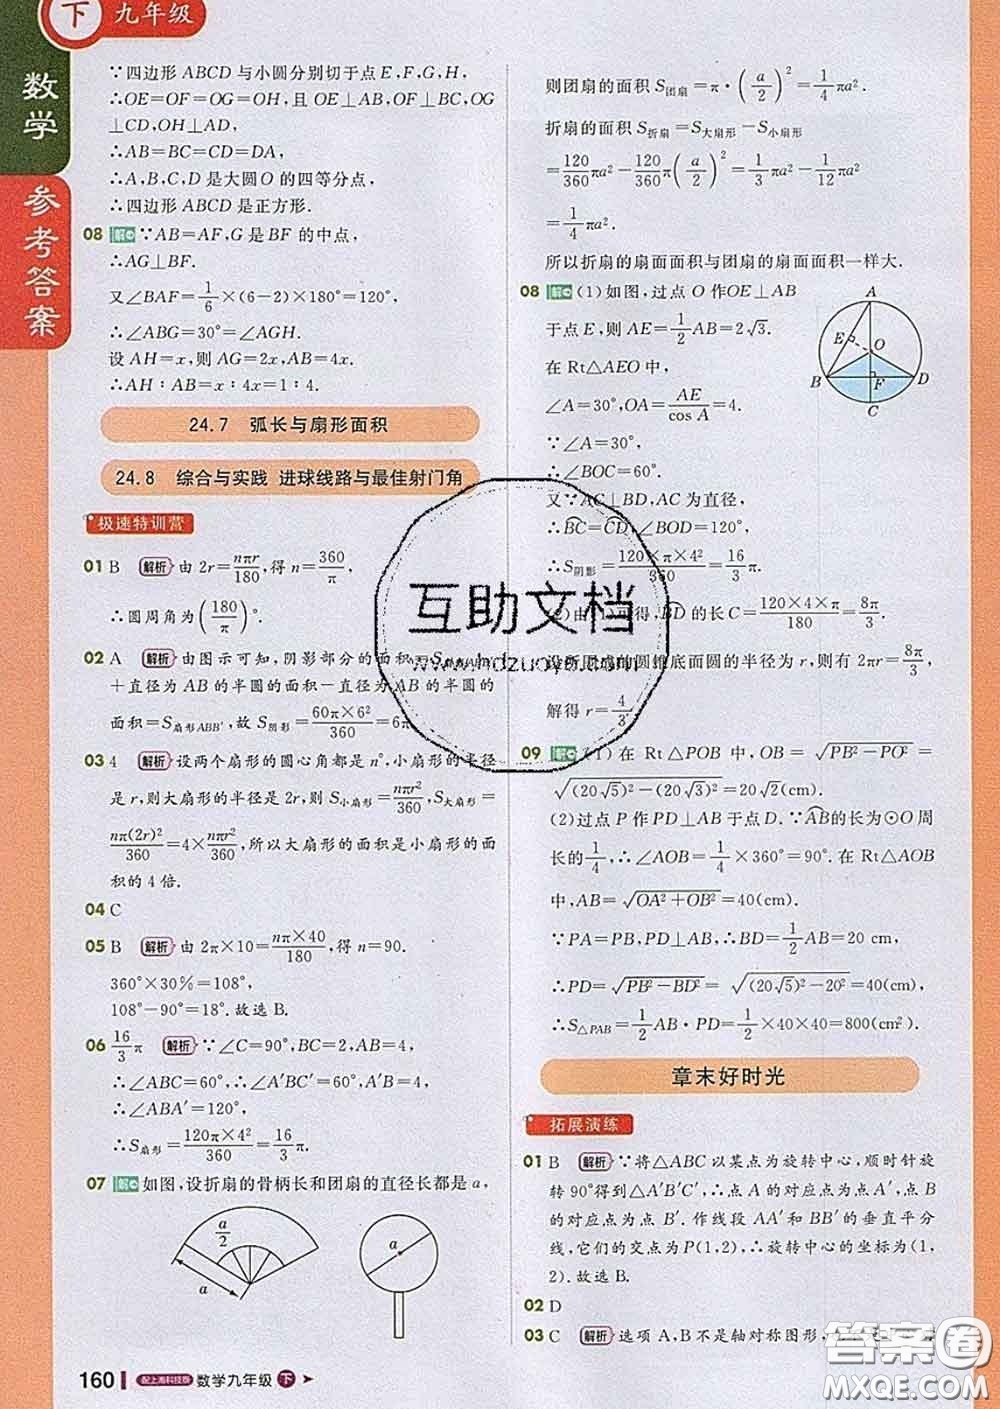 下 九年级
数学
参考答案
∵四边形 ABCD 与小圆分别切于点 E,F,G,H,
∴OE=OF=OG=OH,且 OE⊥AB,OF⊥BC,OG
⊥CD,OH⊥AD,
∴AB=BC=CD=DA,
∴A,B,C,D 是大圆 O 的四等分点,
∴四边形 ABCD 是正方形.
08 解 ∵AB=AF,G 是 BF 的中点,
∴AG⊥BF.
又∠BAF=1/6×(6-2)×180°=120°,
∴∠ABG=30°=∠AGH.
设 AH=x,则 AG=2x,AB=4x.
∴AH∶AB=x∶4x=1∶4.
24.7 弧长与扇形面积
24.8 综合与实践 进球线路与最佳射门角
极速特训营
01 B 解析 由 2r=nπr/180,得 n=360/π,
∴圆周角为(180/π)°.
02 A 解析 由图示可知,阴影部分的面积=
+直径为 AB 的半圆的面积-直径为 AB 的半圆的
面积=S扇形ABB′,故 S阴影=60π×6²/360=6π
03 4 解析 设两个扇形的圆心角都是 n°,小扇形的半径
是 r,则大扇形的半径是 2r,则 S小扇形=nπr²/360,S大扇形=
nπ(2r)²/360=4×nπr²/360,所以大扇形的面积是小扇形的面
积的 4 倍.
04 C
05 B 解析 由 2π×10=nπ×40/180,得 n=90.
360°×30%=108°,
108°-90°=18°.故选 B.
06 16/3π 解析 ∵∠C=90°,BC=2,AB=4,
∴∠ABC=60°,∴∠A′BC′=60°,A′B=4,
∴∠ABA′=120°,
∴S扇形=120π×4²/360=16/3π.
07 解 如图,设折扇的骨柄长和团扇的直径长都是 a,
a/2
a
a
则团扇的面积 S团扇=π·(a/2)²=1/4πa².
折扇的面积 S折扇=S大扇形-S小扇形
=120/360πa²-120/360π(a/2)²=1/3πa²-1/12πa²
=1/4πa².
所以折扇的扇面面积与团扇的扇面面积一样大.
08 解 (1)如图,过点 O 作 OE⊥AB
于点 E,则 AE=1/2AB=2√3.
在 Rt△AEO 中,
∠A=30°,OA=AE/cos A=4.
∵∠A=30°,
∴∠BOC=60°.
又∵AC⊥BD,AC 为直径,
∴BC=CD,∠BOD=120°,
∴S阴影=120×π×4²/360=16/3π.
(2)由(1)可得,BD 的长 C=120×4×π/180=8π/3
设所围成的圆锥底面圆的半径为 r,则有 2πr=8π/3,
解得 r=4/3.
A
E
O
B
F
D
C
09 解 (1)在 Rt△POB 中,OB=√(PB²-PO²)=
√((20√5)²-(20√3)²)=20√2(cm).
(2)过点 P 作 PD⊥AB 于点 D.∵AB的长为⊙O 周
长的1/4,∴∠AOB=1/4×360°=90°.在 Rt△AOB
中,AB=√(OA²+OB²)=40(cm).
∵PA=PB,PD⊥AB,∴BD=1/2AB=20 cm,
∴PD=√(PB²-BD²)=√((20√5)²-20²)=40(cm),
∴S△PAB=1/2AB·PD=1/2×40×40=800(cm²).
章末好时光
拓展演练
01 B 解析 ∵将△ABC 以某点为旋转中心,顺时针旋
转 90°得到△A′B′C′,∴点 A 的对应点为点 A′,点 B
的对应点为点 B′.作线段 AA′和 BB′的垂直平分
线,它们的交点为 P(1,2),∴旋转中心的坐标为(1,
2).故选 B.
02 D
03 C 解析 选项 A,B 不是轴对称图形,
160 配上海科技版 数学九年级 下
互助文档
www.hdzuoye.com
答案圈
MXQE.COM